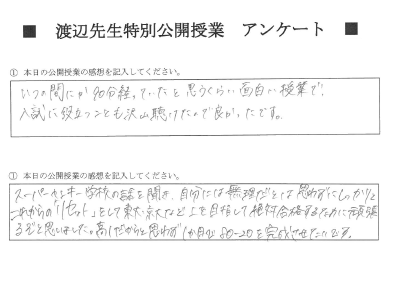 ■ 渡辺先生特別公開授業 アンケート ■
① 本日の公開授業の感想を記入してください。
いつの間にか90分経っていたと思うくらい面白い授業で!
入試に役立つことも沢山聴けたので良かったです。
① 本日の公開授業の感想を記入してください。
スーパーヤンキー学校の話を聞き、自分には無理だとは思わずにしっかりと
これからの「リセット」をして東大、京大など上を目指して絶対合格するために頑張
るぞと思いました。高1だからと思わず1か月で80-20を完成させたいです。